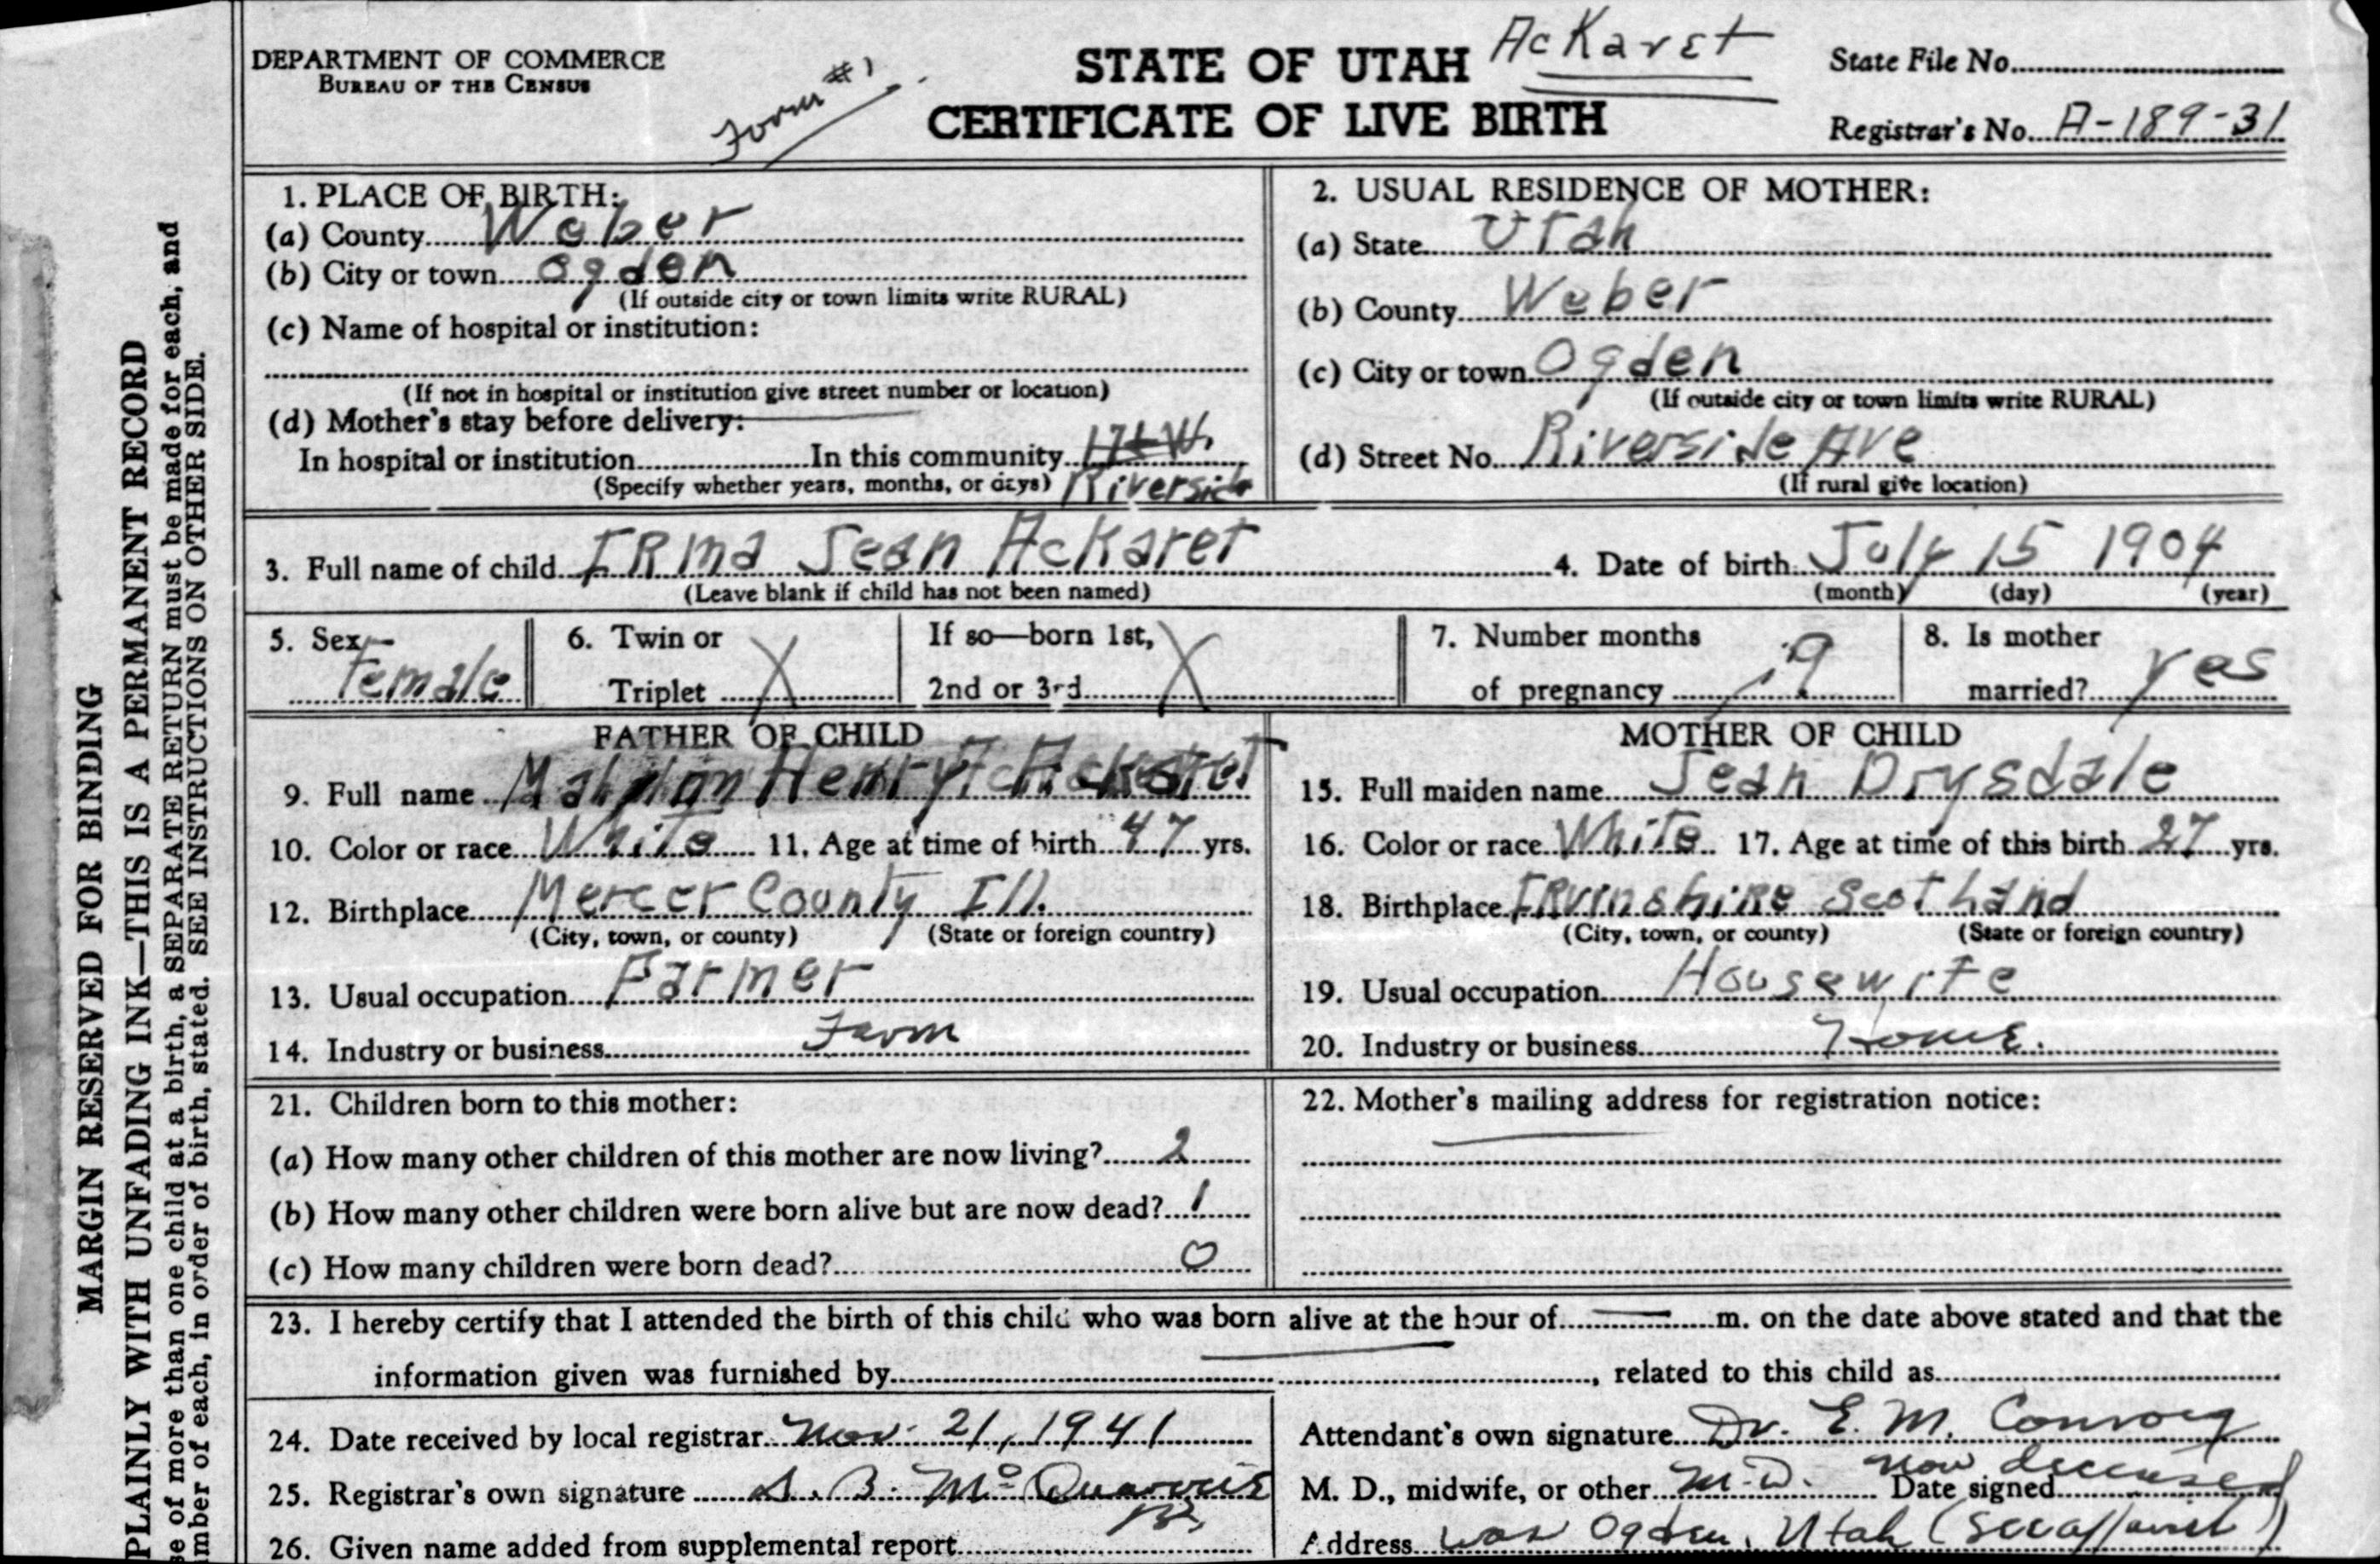 DEPARTMENT OF COMMERCE
BUREAU OF THE CENSUS
Form #1
STATE OF UTAH
AcKaret
CERTIFICATE OF LIVE BIRTH
State File No.
Registrar's No. A-189-31
MARGIN RESERVED FOR BINDING
PLAINLY WITH UNFADING INK—THIS IS A PERMANENT RECORD
se of more than one child at a birth, a SEPARATE RETURN must be made for each, and
mber of each, in order of birth, stated. SEE INSTRUCTIONS ON OTHER SIDE.
1. PLACE OF BIRTH:
(a) County Weber
(b) City or town Ogden
(If outside city or town limits write RURAL)
(c) Name of hospital or institution:
(If not in hospital or institution give street number or location)
(d) Mother's stay before delivery:
In hospital or institution In this community
(Specify whether years, months, or days) Riverside
2. USUAL RESIDENCE OF MOTHER:
(a) State Utah
(b) County Weber
(c) City or town Ogden
(If outside city or town limits write RURAL)
(d) Street No. Riverside Ave
(If rural give location)
3. Full name of child IRma Jean AcKaret 4. Date of birth July 15 1904
(Leave blank if child has not been named) (month) (day) (year)
5. Sex Female
6. Twin or Triplet X
If so—born 1st, 2nd or 3rd X
7. Number months of pregnancy 9
8. Is mother married? yes
FATHER OF CHILD
9. Full name Henry AcKaret
10. Color or race White 11. Age at time of birth 47 yrs.
12. Birthplace Mercer County Ill.
(City, town, or county) (State or foreign country)
13. Usual occupation Farmer
14. Industry or business Farm
MOTHER OF CHILD
15. Full maiden name Jean Drysdale
16. Color or race White 17. Age at time of this birth 27 yrs.
18. Birthplace IRvinshire Scotland
(City, town, or county) (State or foreign country)
19. Usual occupation Housewife
20. Industry or business Home.
21. Children born to this mother:
(a) How many other children of this mother are now living? 2
(b) How many other children were born alive but are now dead? 1
(c) How many children were born dead? 0
22. Mother's mailing address for registration notice:
23. I hereby certify that I attended the birth of this child who was born alive at the hour of m. on the date above stated and that the
information given was furnished by , related to this child as
24. Date received by local registrar Nov. 21, 1941
25. Registrar's own signature
26. Given name added from supplemental report
Attendant's own signature Dr. E. M. Conroy
now deceased
M. D., midwife, or other M.D. Date signed
Address was Ogden, Utah